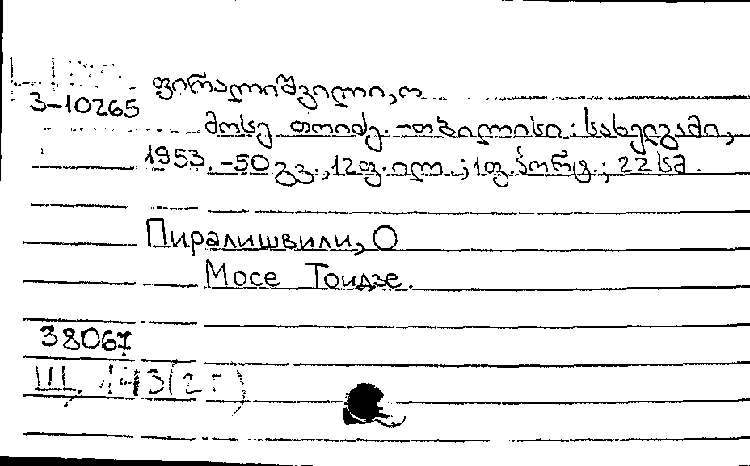 ფირალიშვილი, ო
3-10265
მოსე თოიძე. -თბილისი: სახელგამი,
1953. -50 გვ., 12 ფ. ილ.; 1 ფ. პორტ.; 22 სმ.
Пиралишвили, О
Мосе Тоидзе.
38067
III. 143(2Г)